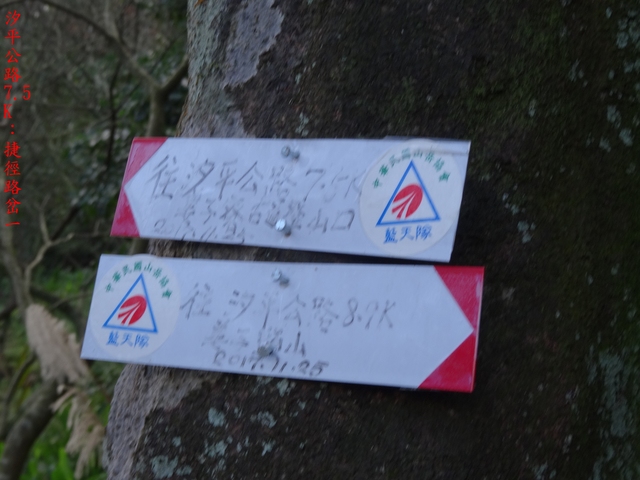 汐平公路7.5K:捷徑路岔一
往汐平公路 7.5K
山口
中華民國山岳協會
藍天隊
中華民國山岳協會
藍天隊
往 汐平公路 8.9K
山
2017.11.25